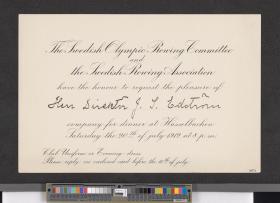 The Swedish Olympic Rowing Committee
and
the Swedish Rowing Association
have the honour to request the pleasure of
Herr Direktör J. S. Edström
company for dinner at Hasselbacken
Saturday the 20th of july 1912 at 8 p.m.
Club Uniform or Evening-dress
Please reply on enclosed card before the 16th of july.